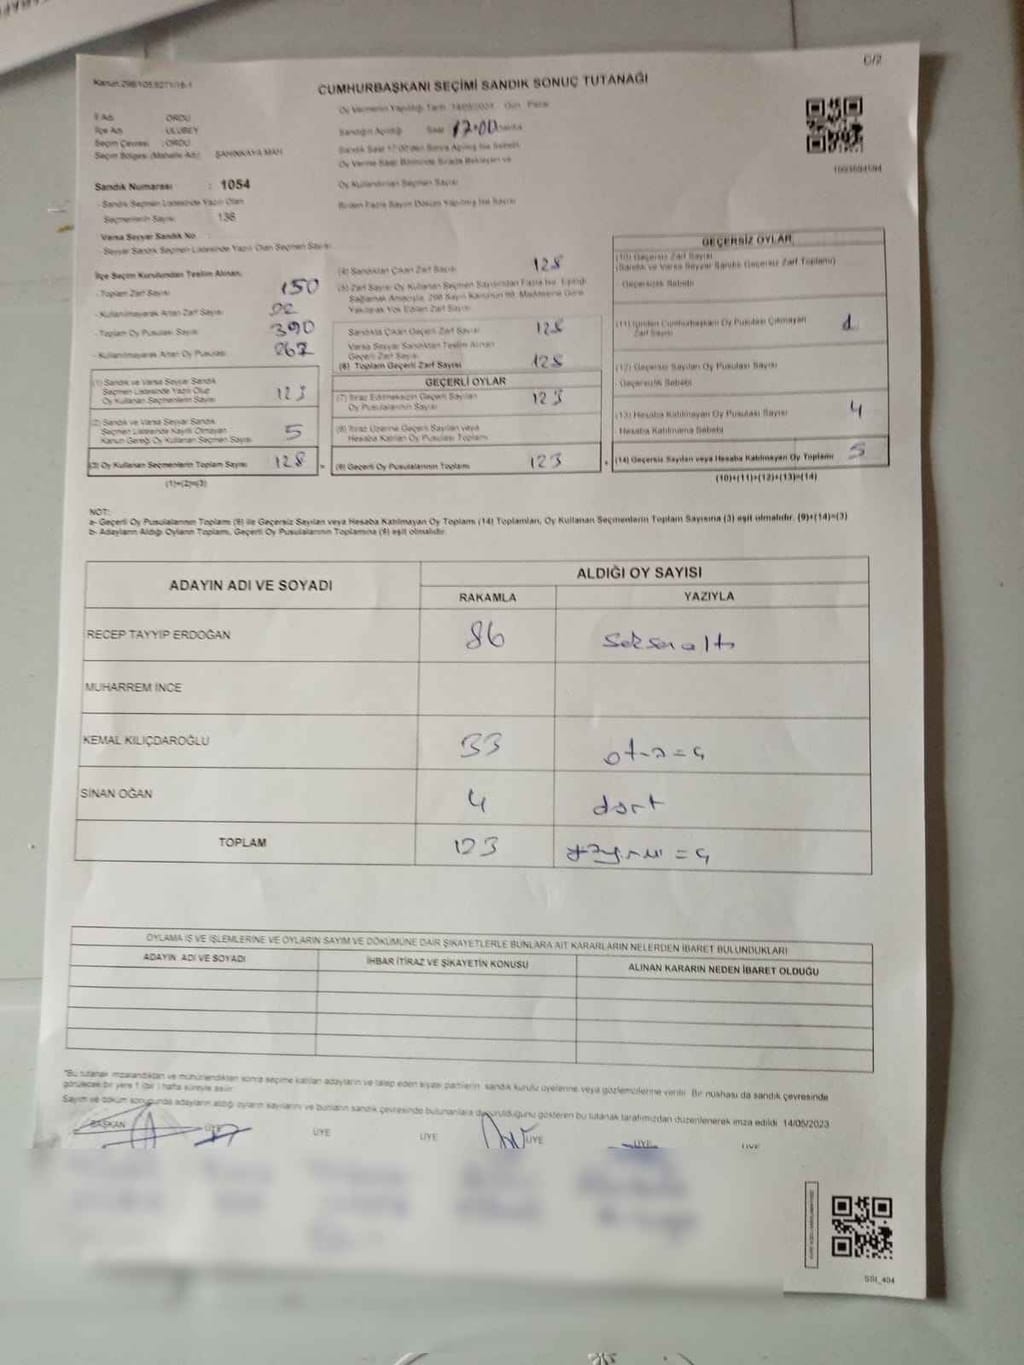 C/2
CUMHURBAŞKANI SEÇİMİ SANDIK SONUÇ TUTANAĞI
Oy Vermenin Yapıldığı Tarih 14/05/2023 Gün Pazar
İl Adı ORDU
İlçe Adı ULUBEY
Seçim Çevresi : ORDU
Seçim Bölgesi (Mahalle Adı) ŞAHİNKAYA MAH.
Sandığın Açıldığı Saat 17:00
Oy Kullandırılan Seçmen Sayısı
Sandık Numarası : 1054
- Sandık Seçmen Listesinde Yazılı Olan
Seçmenlerin Sayısı 136
Varsa Seyyar Sandık No
- Seyyar Sandık Seçmen Listesinde Yazılı Olan Seçmen Sayısı
İlçe Seçim Kurulundan Teslim Alınan,
- Toplam Zarf Sayısı 150
- Kullanılmayarak Artan Zarf Sayısı 22
- Toplam Oy Pusulası Sayısı 390
- Kullanılmayarak Artan Oy Pusulası 267
(1) Sandık ve Varsa Seyyar Sandık
Seçmen Listesinde Yazılı Olup
Oy Kullanan Seçmenlerin Sayısı 123
(2) Sandık ve Varsa Seyyar Sandık
Seçmen Listesinde Kayıtlı Olmayan
Kanun Gereği Oy Kullanan Seçmen Sayısı 5
(3) Oy Kullanan Seçmenlerin Toplam Sayısı 128
(1)+(2)=(3)
(4) Sandıktan Çıkan Zarf Sayısı 128
(5) Zarf Sayısı Oy Kullanan Seçmen Sayısından Fazla İse, Eşitliği
Sağlamak Amacıyla, 298 Sayılı Kanunun 98. Maddesine Göre
Yakılarak Yok Edilen Zarf Sayısı
Sandıkta Çıkan Geçerli Zarf Sayısı 128
Varsa Seyyar Sandıktan Teslim Alınan
Geçerli Zarf Sayısı
(6) Toplam Geçerli Zarf Sayısı 128
GEÇERLİ OYLAR
(7) İtiraz Edilmeksizin Geçerli Sayılan
Oy Pusulalarının Sayısı 123
(8) İtiraz Üzerine Geçerli Sayılan veya
Hesaba Katılan Oy Pusulası Toplamı
(9) Geçerli Oy Pusulalarının Toplamı 123
GEÇERSİZ OYLAR
(10) Geçersiz Zarf Sayısı
(Sandık ve Varsa Seyyar Sandık Geçersiz Zarf Toplamı)
Geçersizlik Sebebi
(11) İçinden Cumhurbaşkanı Oy Pusulası Çıkmayan
Zarf Sayısı
(12) Geçersiz Sayılan Oy Pusulası Sayısı
Geçersizlik Sebebi
(13) Hesaba Katılmayan Oy Pusulası Sayısı 4
Hesaba Katılmama Sebebi
(14) Geçersiz Sayılan veya Hesaba Katılmayan Oy Toplamı 5
(10)+(11)+(12)+(13)=(14)
NOT:
a- Geçerli Oy Pusulalarının Toplamı (9) ile Geçersiz Sayılan veya Hesaba Katılmayan Oy Toplamı (14) Toplamları, Oy Kullanan Seçmenlerin Toplam Sayısına (3) eşit olmalıdır. (9)+(14)=(3)
b- Adayların Aldığı Oyların Toplamı, Geçerli Oy Pusulalarının Toplamına (9) eşit olmalıdır.
ADAYIN ADI VE SOYADI
ALDIĞI OY SAYISI
RAKAMLA YAZIYLA
RECEP TAYYİP ERDOĞAN 86 seksenaltı
MUHARREM İNCE
KEMAL KILIÇDAROĞLU 33 otuzüç
SİNAN OĞAN 4 dört
TOPLAM 123 yüzyirmiüç
OYLAMA İŞ VE İŞLEMLERİNE VE OYLARIN SAYIM VE DÖKÜMÜNE DAİR ŞİKAYETLERLE BUNLARA AİT KARARLARIN NELERDEN İBARET BULUNDUKLARI
ADAYIN ADI VE SOYADI İHBAR İTİRAZ VE ŞİKAYETİN KONUSU ALINAN KARARIN NEDEN İBARET OLDUĞU
"Bu tutanak imzalandıktan ve mühürlendikten sonra seçime katılan adayların ve talep eden siyasi partilerin sandık kurulu üyelerine veya gözlemcilerine verilir. Bir nüshası da sandık çevresinde
görülecek bir yere 1 (bir) hafta süreyle asılır.
Sayım ve döküm sonucunda adayların aldığı oyların sayılarını ve bunların sandık çevresinde bulunanlara duyurulduğunu gösteren bu tutanak tarafımızdan düzenlenerek imza edildi. 14/05/2023
BAŞKAN ÜYE ÜYE ÜYE ÜYE ÜYE ÜYE